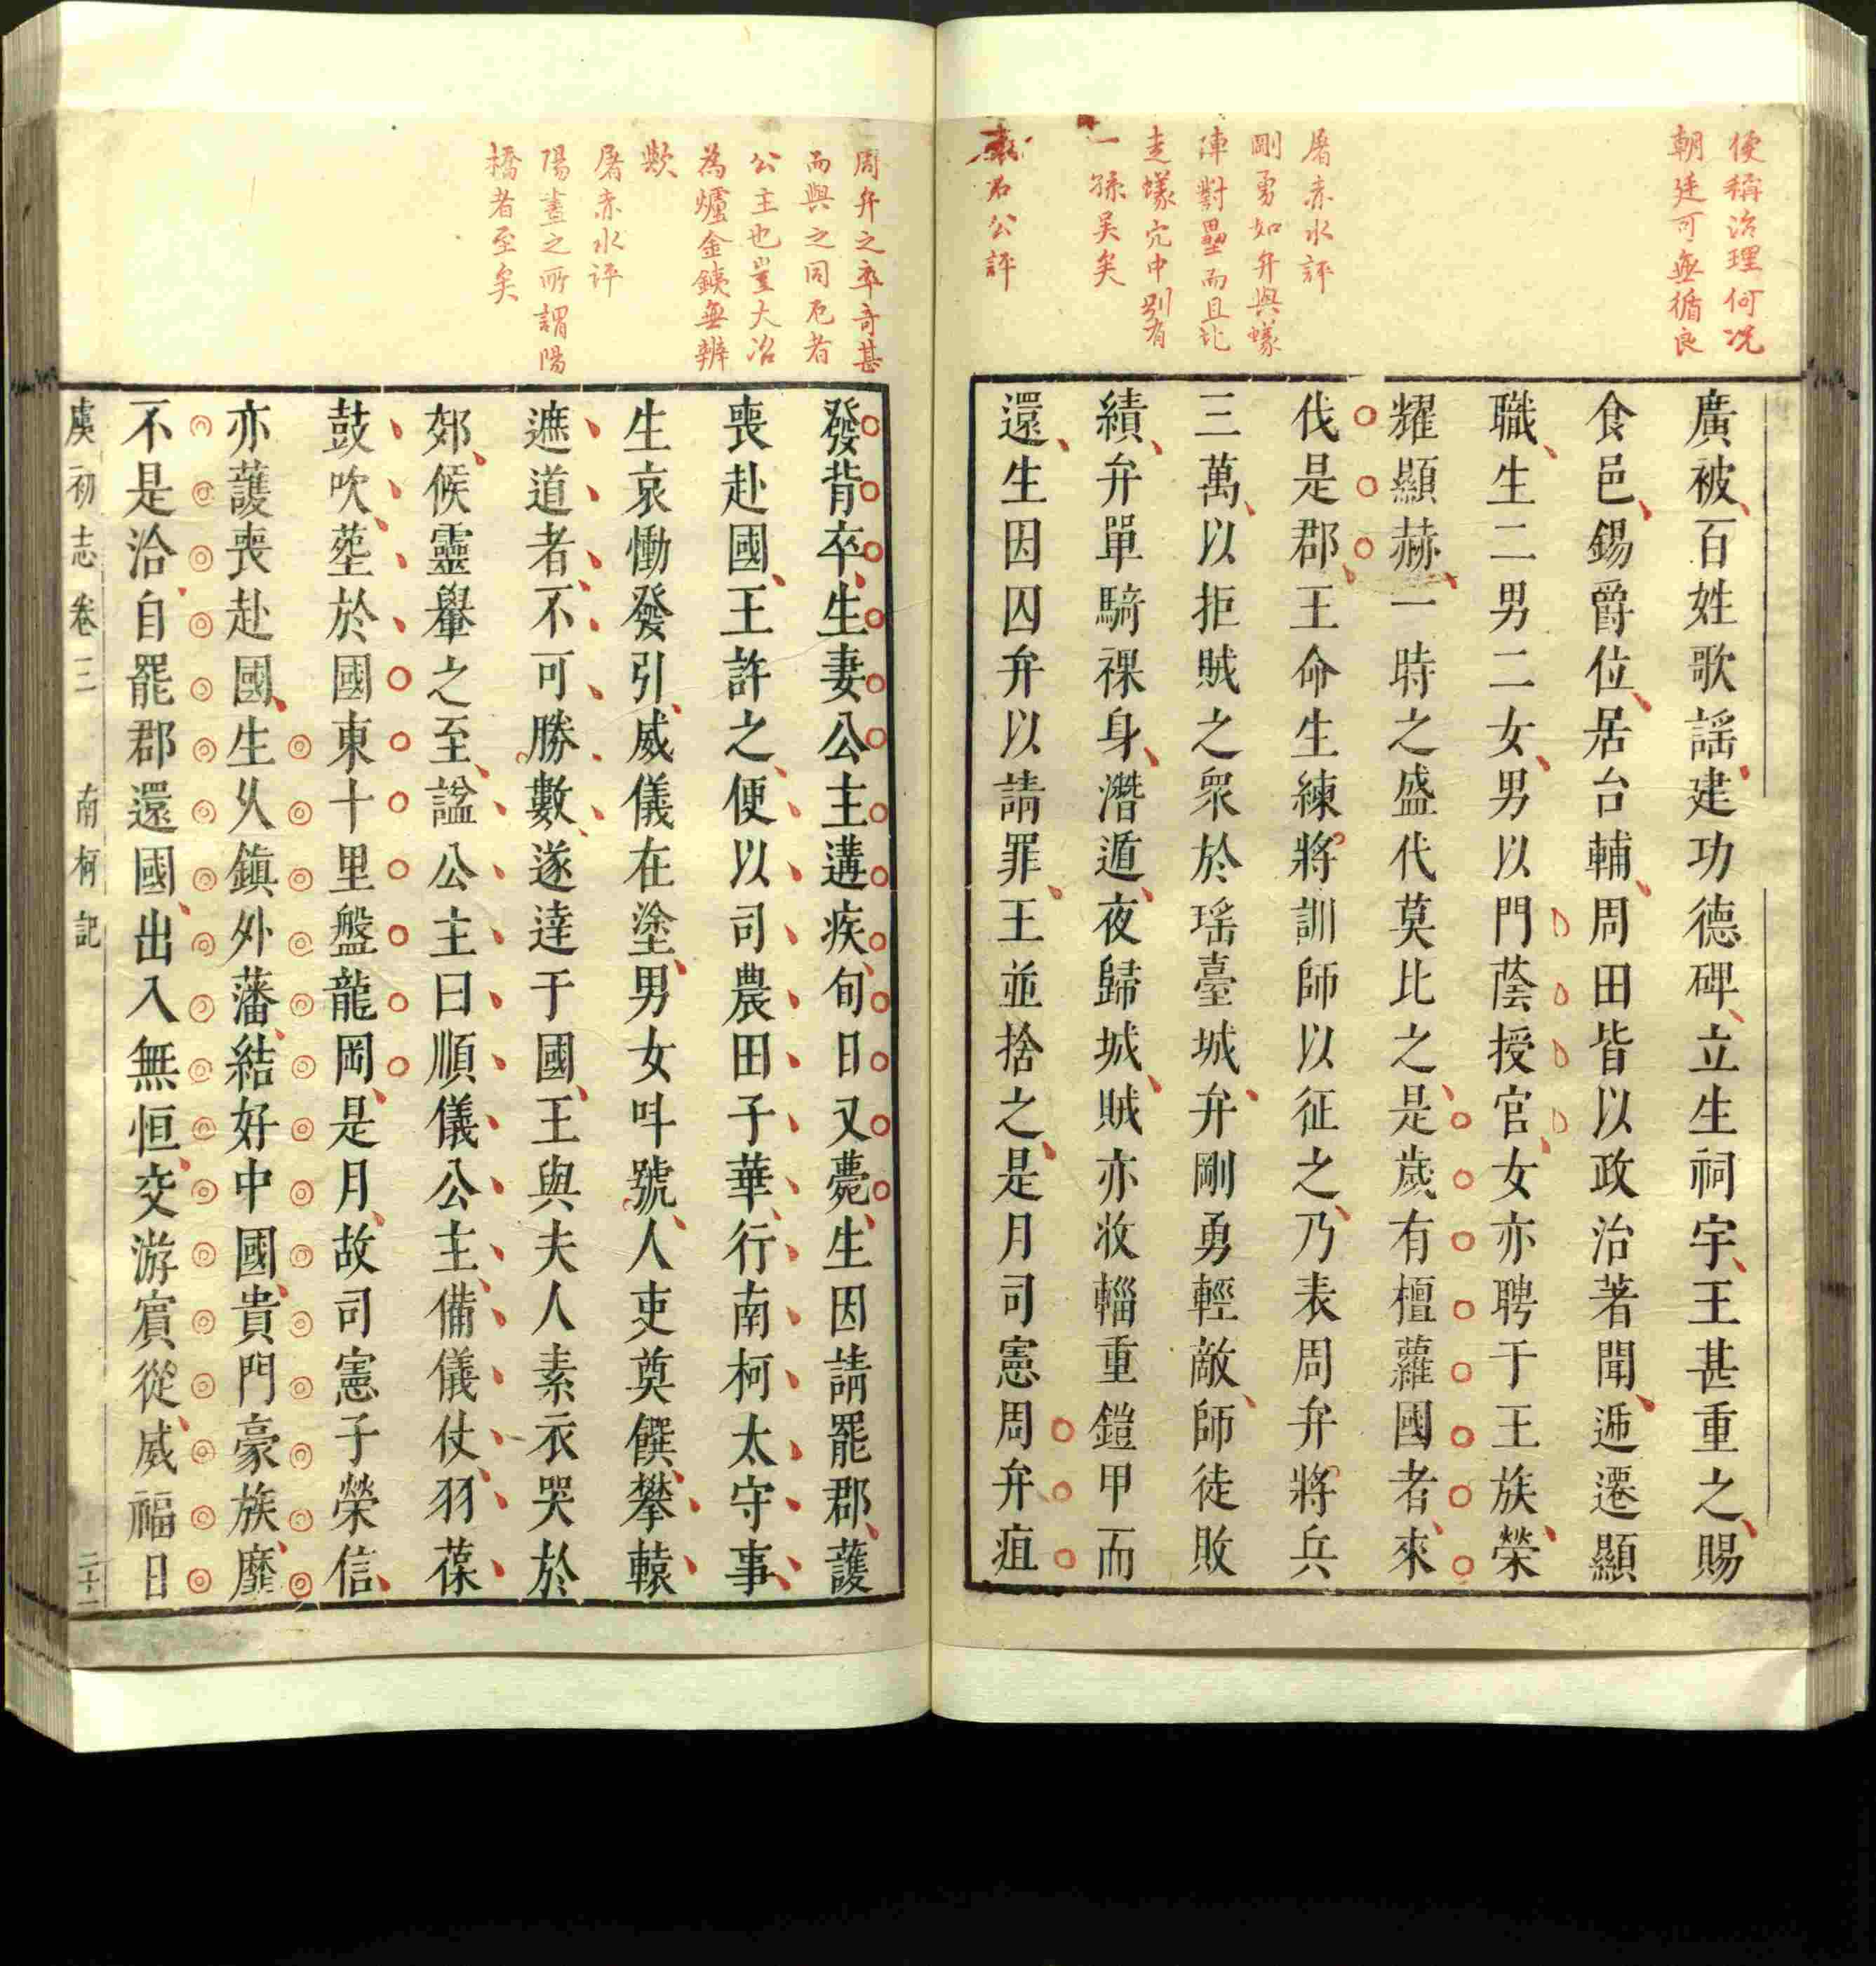 便稱治理何况
朝廷可無循良
屠赤水評
剛勇如弁與蟻
陣對壘而且北
走蟻穴中別有
一孫吳矣
袁石公評
廣被百姓歌謠建功德碑立生祠宇王甚重之賜
食邑錫爵位居台輔周田皆以政治著聞遞遷顯
職生二男二女男以門蔭授官女亦聘于王族榮
耀顯赫一時之盛代莫比之是歲有檀蘿國者來
伐是郡王命生練將訓師以征之乃表周弁將兵
三萬以拒賊之衆於瑤臺城弁剛勇輕敵師徒敗
績弁單騎裸身潛遁夜歸城賊亦收輜重鎧甲而
還生因囚弁以請罪王並捨之是月司憲周弁疽
周弁之卒奇甚
而與之同厄者
公主也豈大冶
為爐金銕無辨
歟
屠赤水評
陽晝之所謂陽
橋者至矣
發背卒生妻公主遘疾旬日又薨生因請罷郡護
喪赴國王許之便以司農田子華行南柯太守事
生哀慟發引威儀在塗男女叫號人吏奠饌攀轅
遮道者不可勝數遂達于國王與夫人素衣哭於
郊候靈轝之至諡公主曰順儀公主備儀仗羽葆
鼓吹塟於國東十里盤龍岡是月故司憲子榮信
亦護喪赴國生久鎮外藩結好中國貴門豪族靡
不是洽自罷郡還國出入無恒交游賓從威福日
虞初志卷三 南柯記 二十二